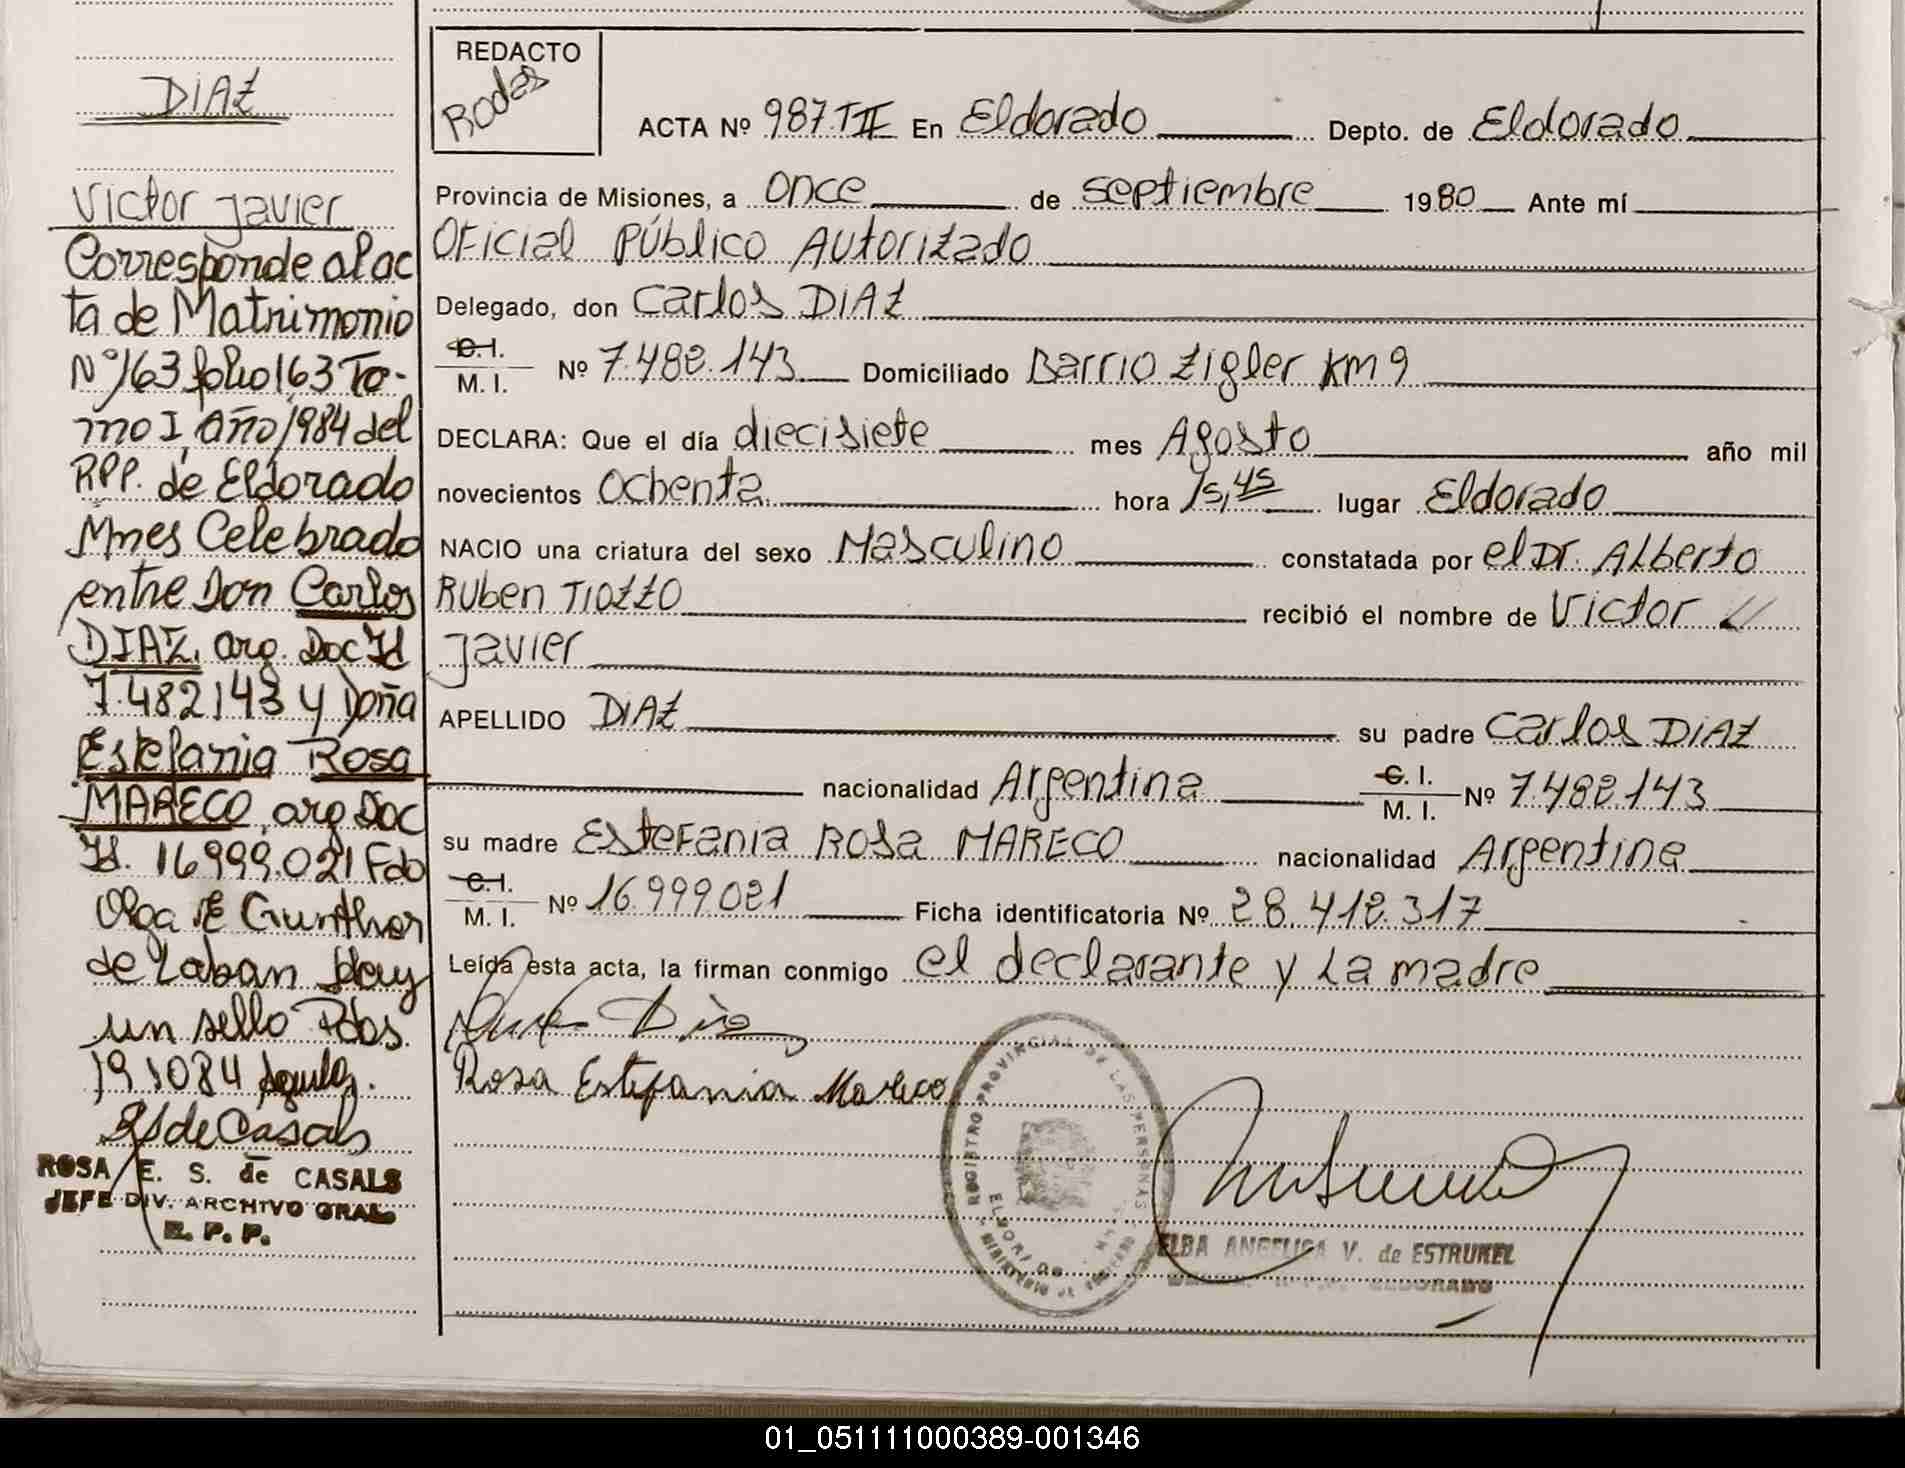 DIAZ
Victor Javier
Corresponde al ac
ta de Matrimonio
Nº 163 folio 163 To-
mo I, año 1984 del
RPP. de Eldorado
Mnes Celebrado
entre Don Carlos
DIAZ, arg. Doc Id
7.482143 y Doña
Estefania Rosa
MARECO, arg Doc
Id. 16999.021 Fdo
Olga E Gunther
de Zaban Hay
un sello Pdas.
191084
RS de Casals
ROSA E. S. de CASALS
JEFE DIV. ARCHIVO GRAL
R. P. P.
REDACTO
Rodas
ACTA Nº 987 TII En Eldorado Depto. de Eldorado
Provincia de Misiones, a once de septiembre 1980 Ante mí
Oficial Público Autorizado
Delegado, don Carlos DIAZ
C. I.
M. I. Nº 7.482.143 Domiciliado Barrio Zigler Km 9
DECLARA: Que el día diecisiete mes Agosto año mil
novecientos ochenta hora 15,45 lugar Eldorado
NACIO una criatura del sexo Masculino constatada por el Dr. Alberto
Ruben TIOZZO recibió el nombre de Victor
Javier
APELLIDO DIAZ su padre Carlos DIAZ
nacionalidad Argentina C. I.
M. I. Nº 7.482.143
su madre Estefania Rosa MARECO nacionalidad Argentina
C. I.
M. I. Nº 16.999.021 Ficha identificatoria Nº 28.412.317
Leída esta acta, la firman conmigo el declarante y la madre
Diaz
Rosa Estefania Mareco
REGISTRO PROVINCIAL DE LAS PERSONAS
ELDORADO
ELBA ANGELICA V. de ESTRUKEL
ELDORADO
01_051111000389-001346